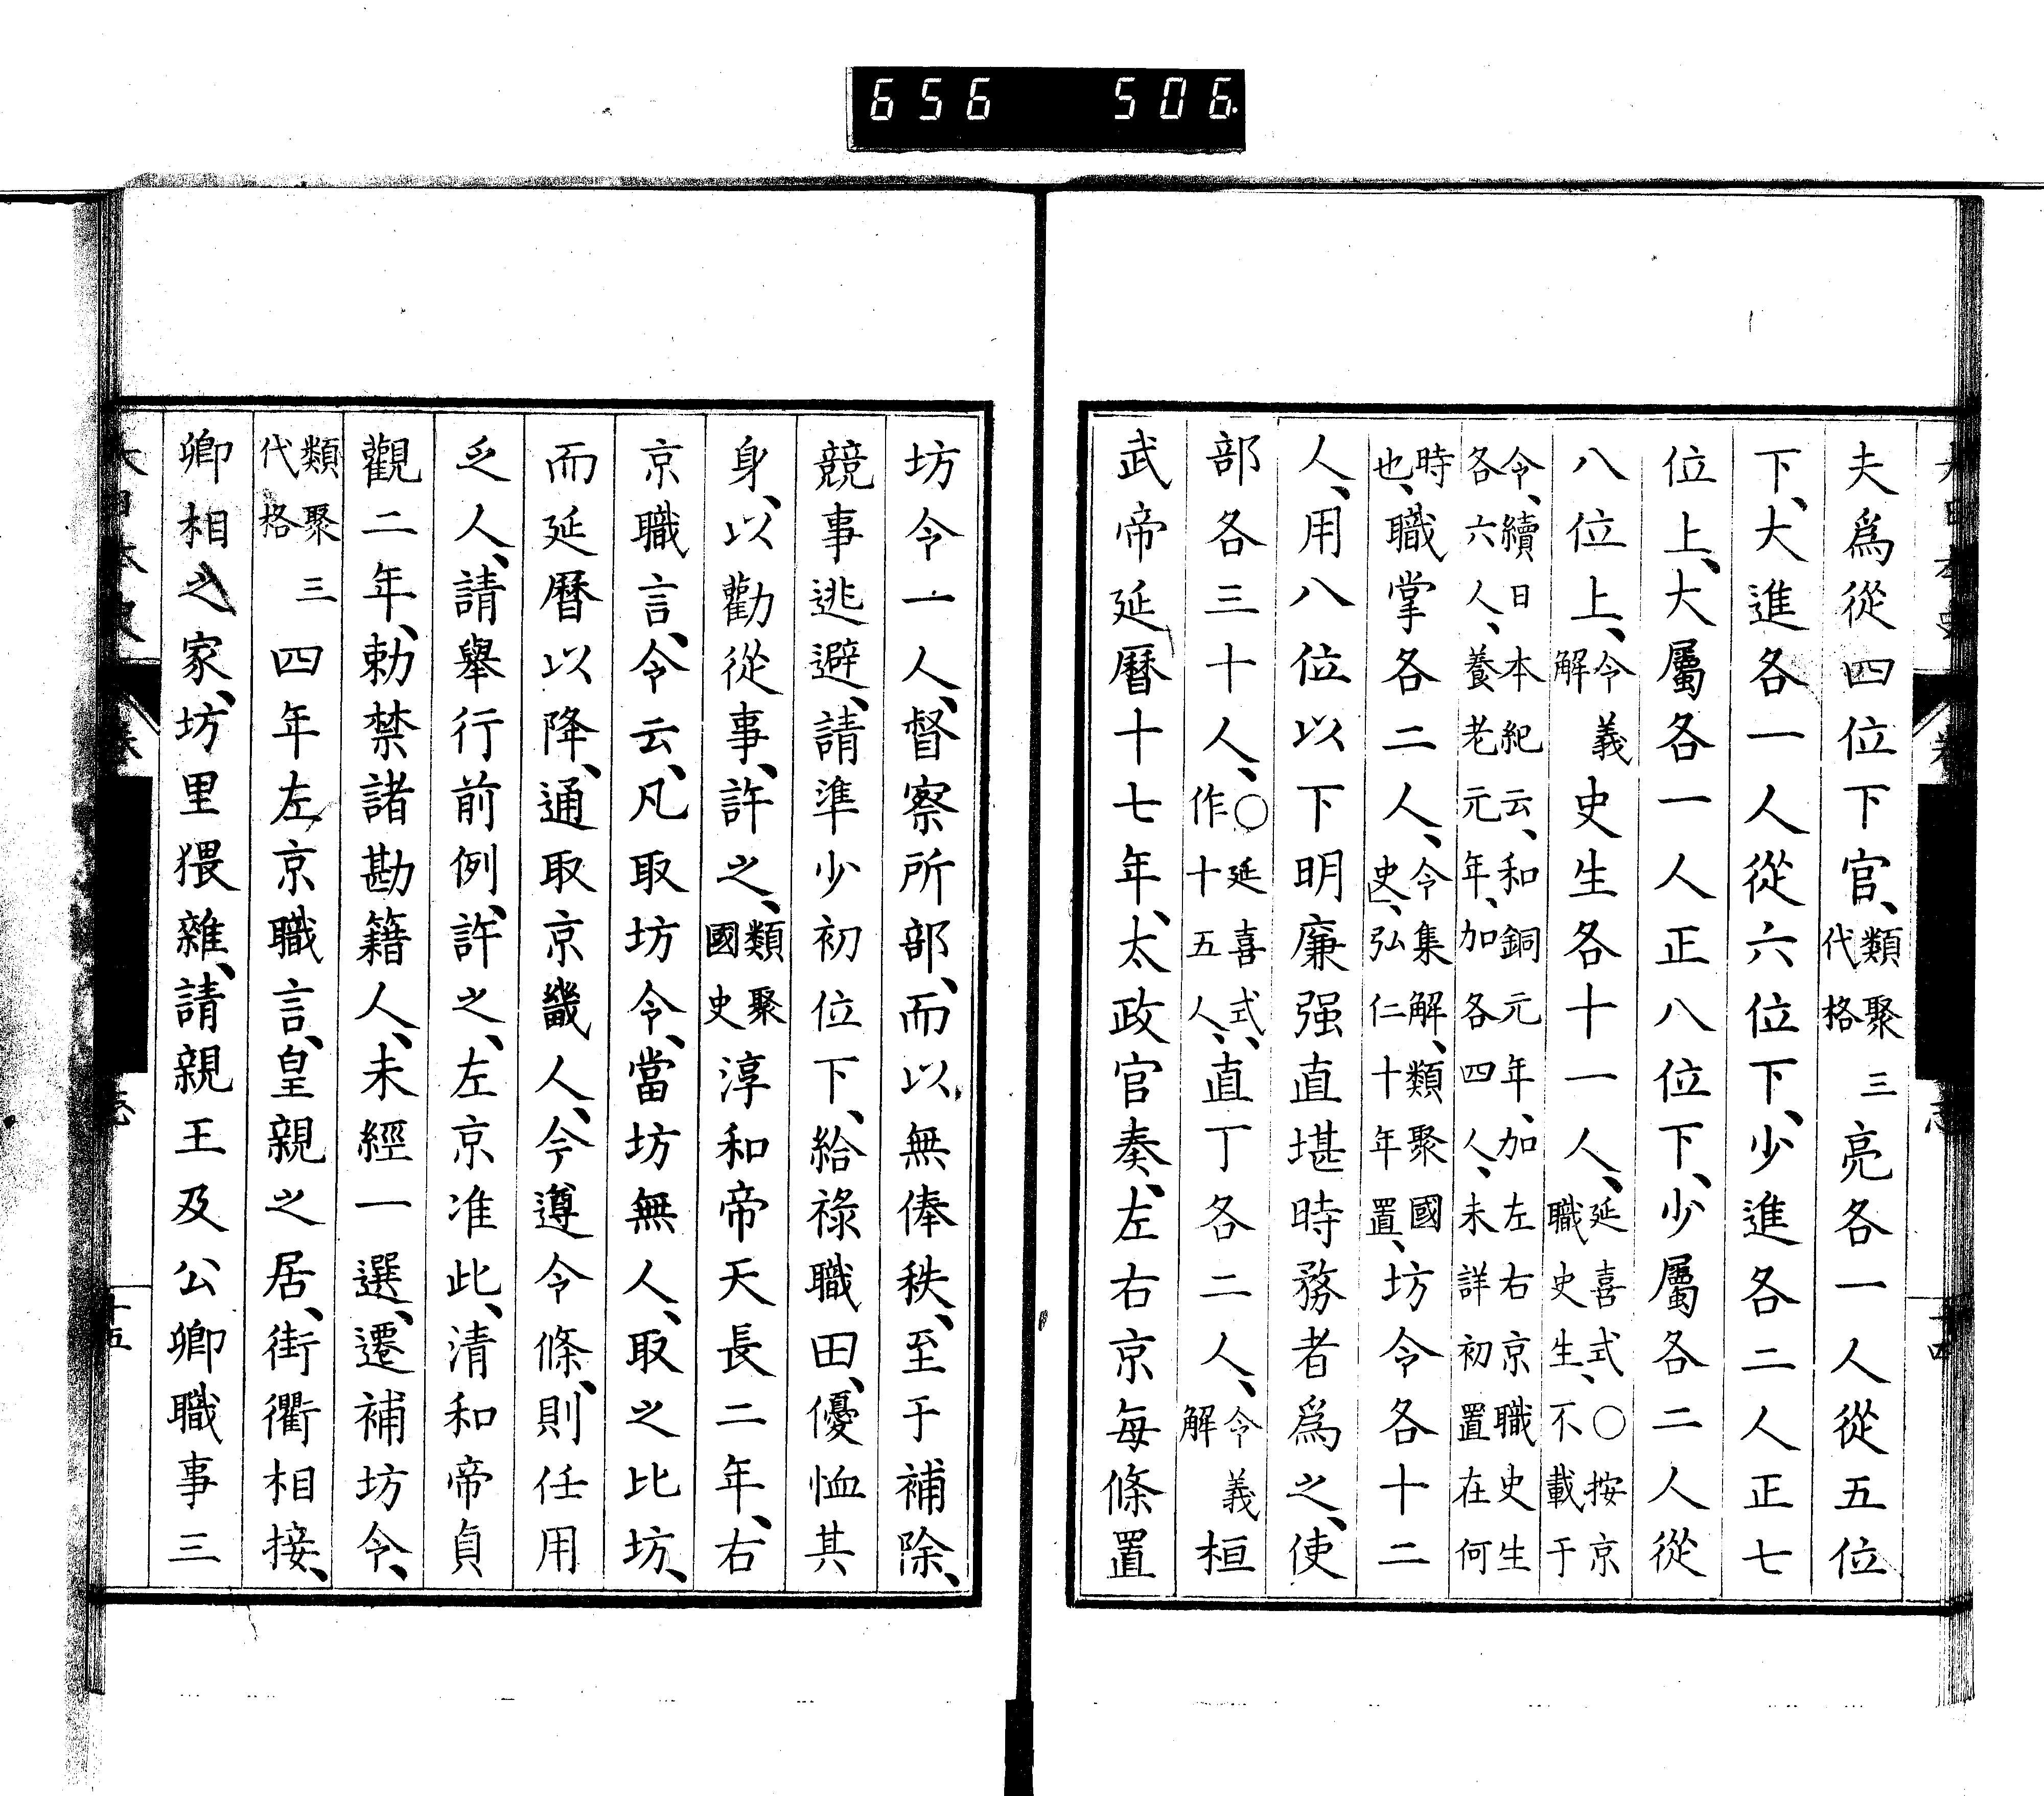 656 506
夫爲從四位下官、類聚三代格亮各一人從五位
下、大進各一人從六位下、少進各二人正七
位上、大屬各一人正八位下、少屬各二人從
八位上、令義解史生各十一人、延喜式○按京職史生、不載于
令、續日本紀云、和銅元年、加左右京職史生各六人、養老元年、加各四人、未詳初置在何
時也、職掌各二人、令集解、類聚國史、弘仁十年置、坊令各十二
人、用八位以下明廉强直堪時務者爲之、使
部各三十人、○延喜式、作十五人、直丁各二人、令義解桓
武帝延曆十七年、太政官奏、左右京每條置
坊令一人、督察所部、而以無俸秩、至于補除、
競事逃避、請準少初位下、給祿職田、優恤其
身、以勸從事、許之、類聚國史淳和帝天長二年、右
京職言、令云、凡取坊令、當坊無人、取之比坊、
而延曆以降、通取京畿人、今遵令條、則任用
乏人、請舉行前例、許之、左京准此、清和帝貞
觀二年、勅禁諸勘籍人、未經一選、遷補坊令、
類聚三代格四年左京職言、皇親之居、街衢相接、
卿相之家、坊里猥雜、請親王及公卿職事三
十五